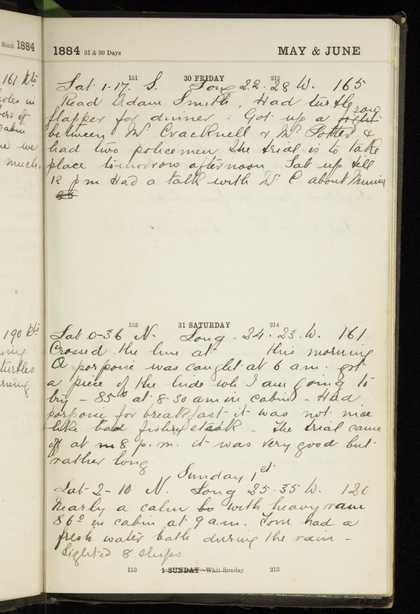 1884 31 & 30 Days MAY & JUNE
151 30 FRIDAY 213
Sat 1.17. S. Long 22.28 W. 165
Read Adam Smith. Had turtle
flapper for dinner. Got up a
between Mr Cracknell & Mr &
had two policemen the trial is to take
place tomorrow afternoon. Sat up till
12 pm Had a talk with Mr C about
152 31 SATURDAY 214
Lat 0-36 N. Long. 24.23. W. 161
Crossed the line at this morning
A porpoise was caught at 6 am. got
a piece of the hide wh I am going to
try - 85° at 8-30 am in cabin - Had
porpoise for breakfast it was not nice
like bad fishery steak. The trial came
off at 8 p.m. it was very good but
rather long
Sunday 1st
Lat-2-10 N. Long 25.35 W. 120
Nearly a calm with heavy rain
86° in cabin at 9 a.m. Tom had a
fresh water bath during the rain -
Sighted 8 ships
153 1 SUNDAY-Whit-Sunday 213
March 1884
161 kts
in
of
cabin
we
much.
190 kts
turtles